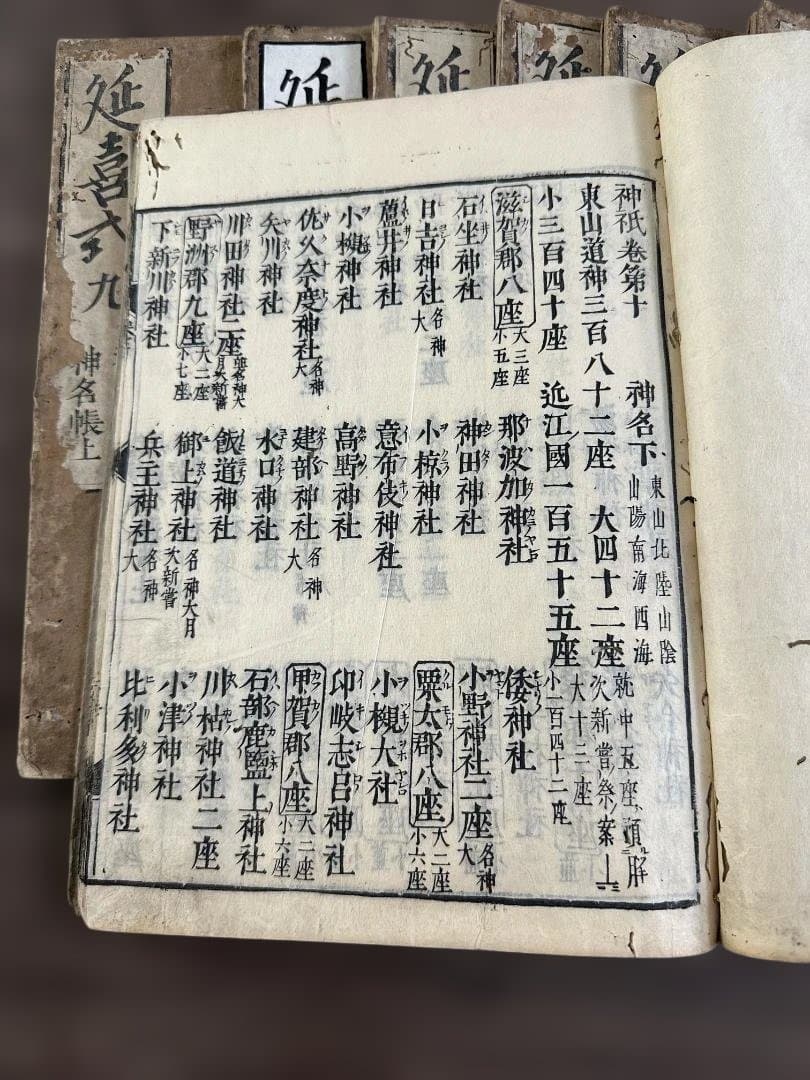 神祇卷第十 神名下 東山北陸山陰山陽南海西海
東山道神三百八十二座 大四十二座 就中五座預月次新嘗祭案上
小三百四十座 近江國一百五十五座 大十三座小一百四十二座
滋賀郡八座 大三座小五座 那波加神社 倭神社
石坐神社 神田神社 小野神社二座 名神大
日吉神社 名神大 小椋神社 粟太郡八座 大二座小六座
蘆井神社 意布伎神社 小槻大社
小槻神社 高野神社 印岐志呂神社
佐久奈度神社 名神大 建部神社 名神大 甲賀郡八座 大二座小六座
矢川神社 水口神社 石部鹿鹽上神社
川田神社二座 並名神大月次新嘗 飯道神社 川枯神社二座
野洲郡九座 大二座小七座 御上神社 名神大月次新嘗 小津神社
下新川神社 兵主神社 名神大 比利多神社
延
延
延
延
延喜式 九
神名帳上